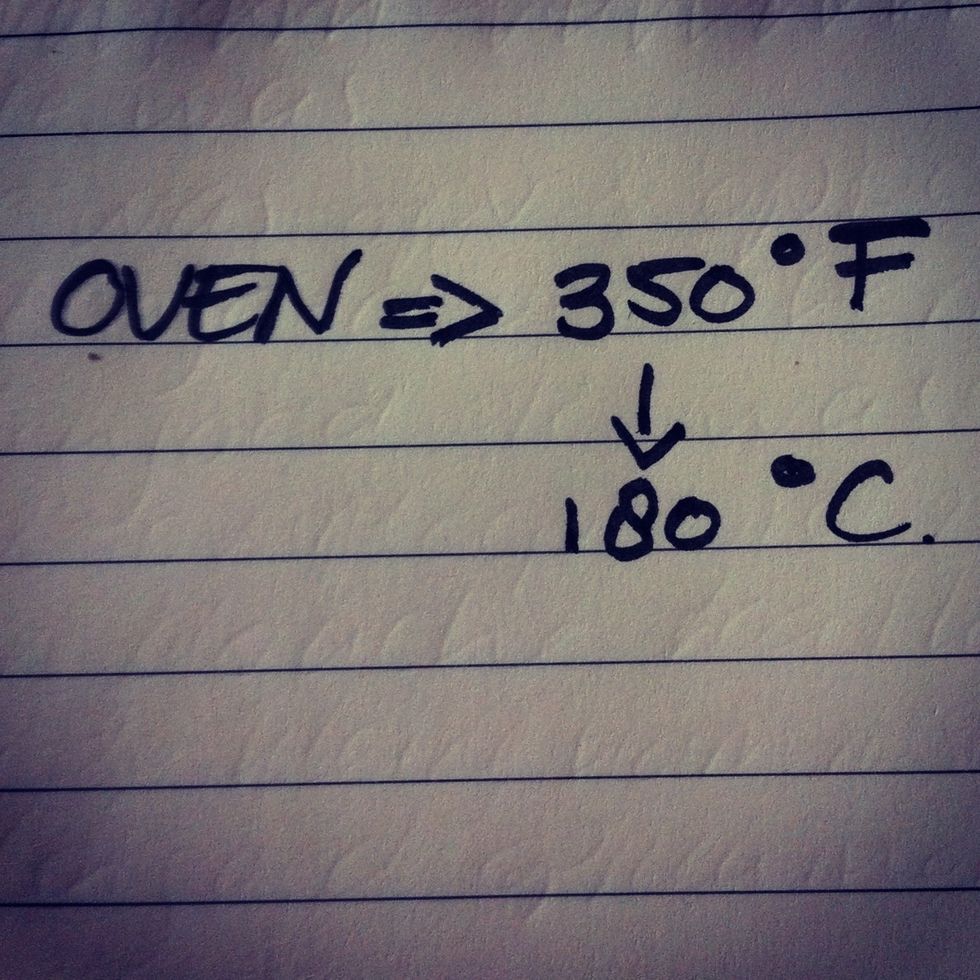 OVEN => 350°F
↓
180 °C.